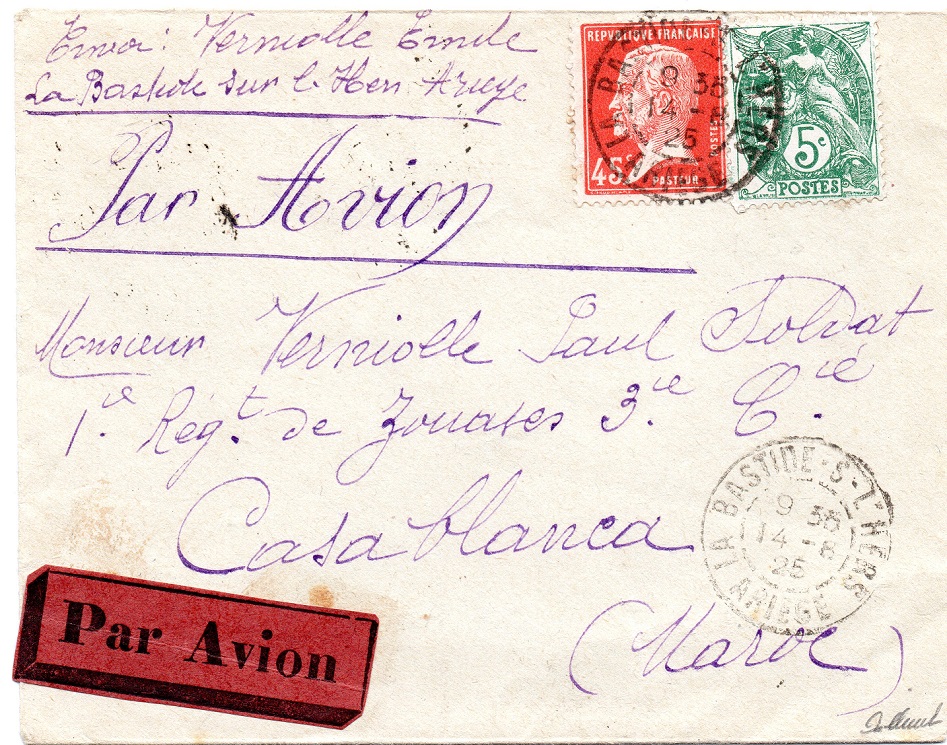 Envoi: Verniolle Emile
La Bastide sur l'Hers Ariège
Par Avion
REPUBLIQUE FRANÇAISE
POSTES
45c
PASTEUR
5c
POSTES
LA BASTIDE
9 35
14 - 8
25
Monsieur Verniolle Paul Soldat
1e Régt. de Zouaves 3.e C.ie
Casablanca
(Maroc)
LA BASTIDE-S-L'HERS
9 35
14 - 8
25
ARIEGE
Par Avion